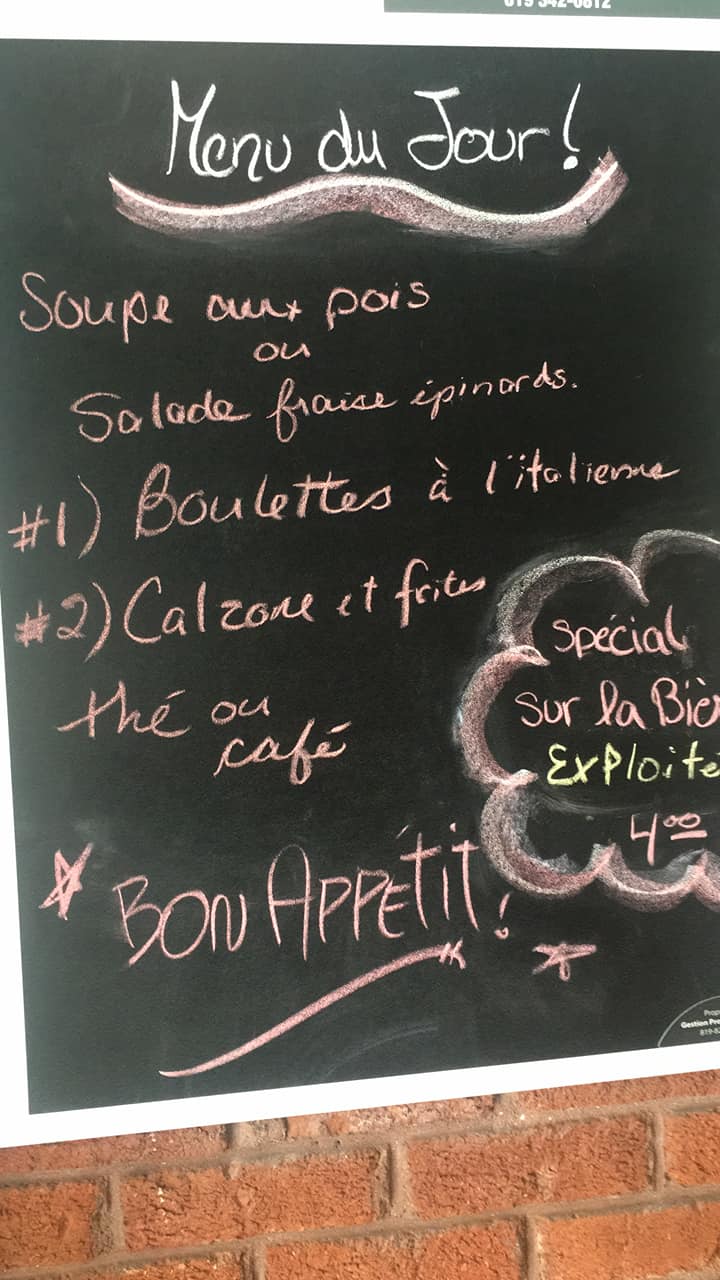 819 342-0812
Menu du Jour!
Soupe aux pois
ou
Salade fraise épinards.
#1) Boulettes à l'italienne
#2) Calzone et frites
thé ou
café
spécial
sur la Biè
Exploité
4.00
BON APPÉTIT!
Prop
Gestion Pre
819-82